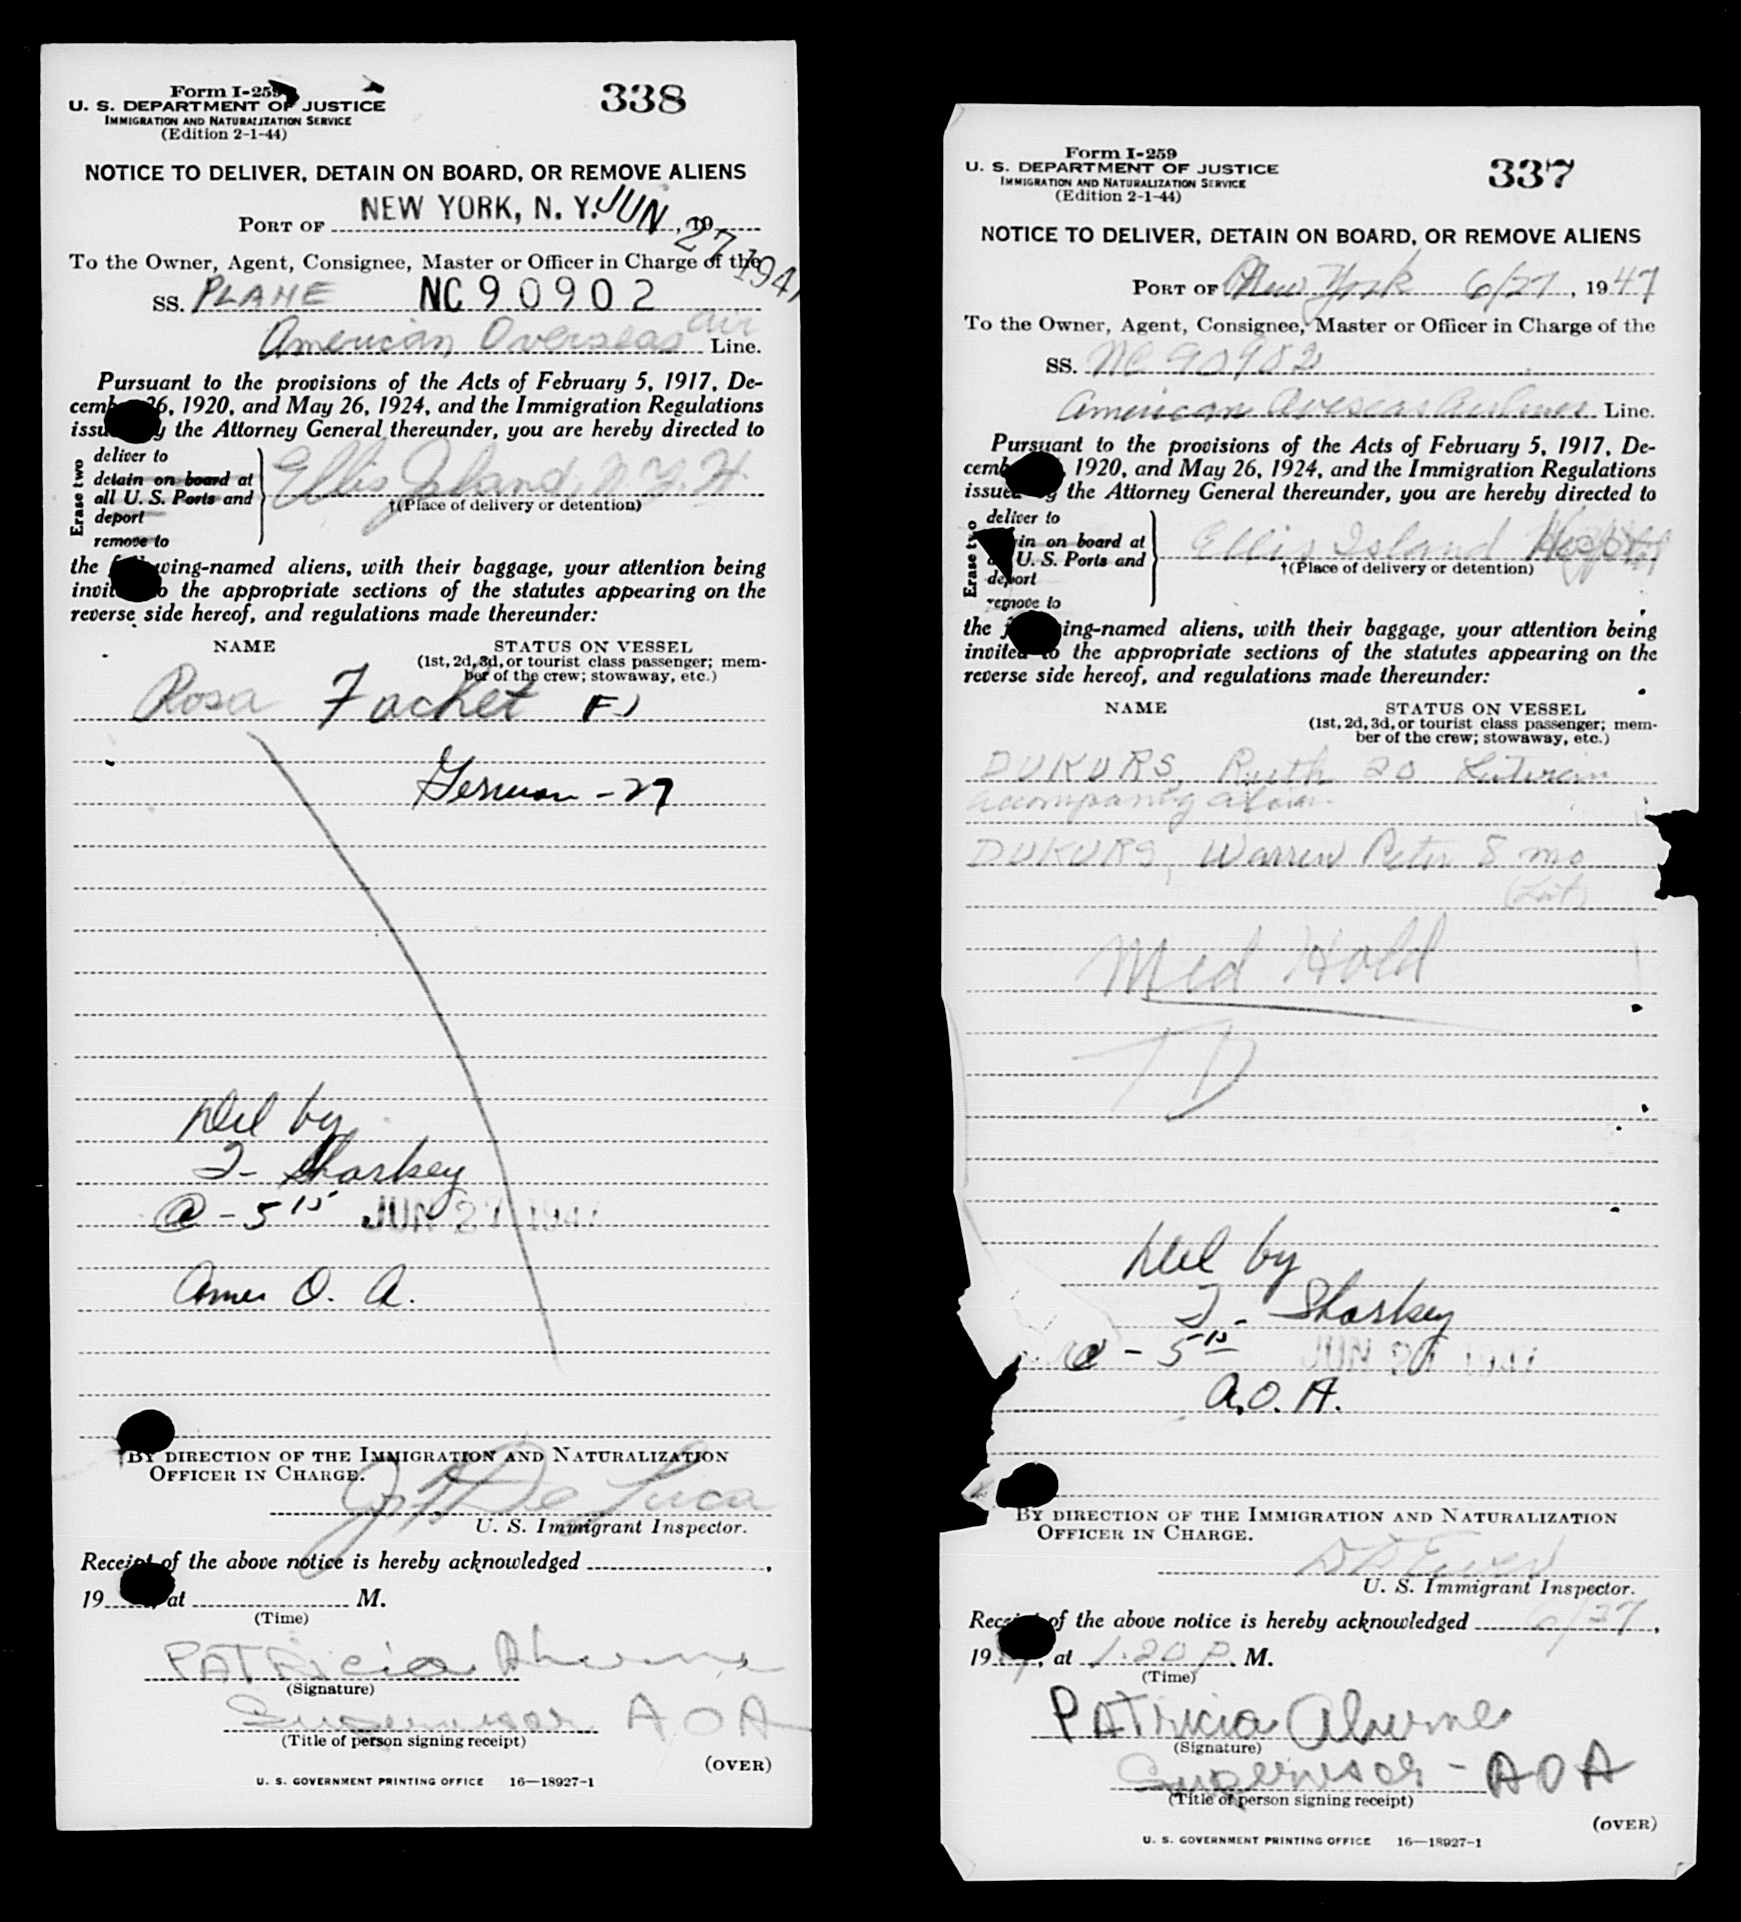 Form I-259
U. S. DEPARTMENT OF JUSTICE
IMMIGRATION AND NATURALIZATION SERVICE
(Edition 2-1-44)
338
NOTICE TO DELIVER, DETAIN ON BOARD, OR REMOVE ALIENS
PORT OF NEW YORK, N. Y. JUN 27 1947, 19
To the Owner, Agent, Consignee, Master or Officer in Charge of the
SS. PLANE NC90902
American Overseas Air Line.
Pursuant to the provisions of the Acts of February 5, 1917, De-
cember 26, 1920, and May 26, 1924, and the Immigration Regulations
issued by the Attorney General thereunder, you are hereby directed to
Erase two
deliver to
detain on board at
all U. S. Ports and
deport
remove to
Ellis Island, N.Y.H.
†(Place of delivery or detention)
the following-named aliens, with their baggage, your attention being
invited to the appropriate sections of the statutes appearing on the
reverse side hereof, and regulations made thereunder:
NAME STATUS ON VESSEL
(1st, 2d, 3d, or tourist class passenger; mem-
ber of the crew; stowaway, etc.)
Rosa Fachet
German - 27
Del by
J- Sharkey
@ - 5 15 JUN 27 1947
Amer O. A.
BY DIRECTION OF THE IMMIGRATION AND NATURALIZATION
OFFICER IN CHARGE.
De Luca
U. S. Immigrant Inspector.
Receipt of the above notice is hereby acknowledged ,
19 , at M.
(Time)
PATRicia Aherne
(Signature)
Supervisor AOA
(Title of person signing receipt)
(OVER)
U. S. GOVERNMENT PRINTING OFFICE 16—18927-1
Form I-259
U. S. DEPARTMENT OF JUSTICE
IMMIGRATION AND NATURALIZATION SERVICE
(Edition 2-1-44)
337
NOTICE TO DELIVER, DETAIN ON BOARD, OR REMOVE ALIENS
PORT OF New York 6/27, 1947
To the Owner, Agent, Consignee, Master or Officer in Charge of the
SS. NC 90902
American Overseas Airlines Line.
Pursuant to the provisions of the Acts of February 5, 1917, De-
cember 26, 1920, and May 26, 1924, and the Immigration Regulations
issued by the Attorney General thereunder, you are hereby directed to
Erase two
deliver to
detain on board at
all U. S. Ports and
deport
remove to
Ellis Island Hospital
†(Place of delivery or detention)
the following-named aliens, with their baggage, your attention being
invited to the appropriate sections of the statutes appearing on the
reverse side hereof, and regulations made thereunder:
NAME STATUS ON VESSEL
(1st, 2d, 3d, or tourist class passenger; mem-
ber of the crew; stowaway, etc.)
DUKURS, Ruth 20
accompanyg alien
DUKURS, Warren Peter 8 mo
Med Hold
TD
Del by
J- Sharkey
@ - 5 15 JUN 27 1947
A.O.A.
BY DIRECTION OF THE IMMIGRATION AND NATURALIZATION
OFFICER IN CHARGE.
U. S. Immigrant Inspector.
Receipt of the above notice is hereby acknowledged 6/27,
1947, at 1.20 P. M.
(Time)
PATricia Aherne
(Signature)
Supervisor - AOA
(Title of person signing receipt)
(OVER)
U. S. GOVERNMENT PRINTING OFFICE 16—18927-1